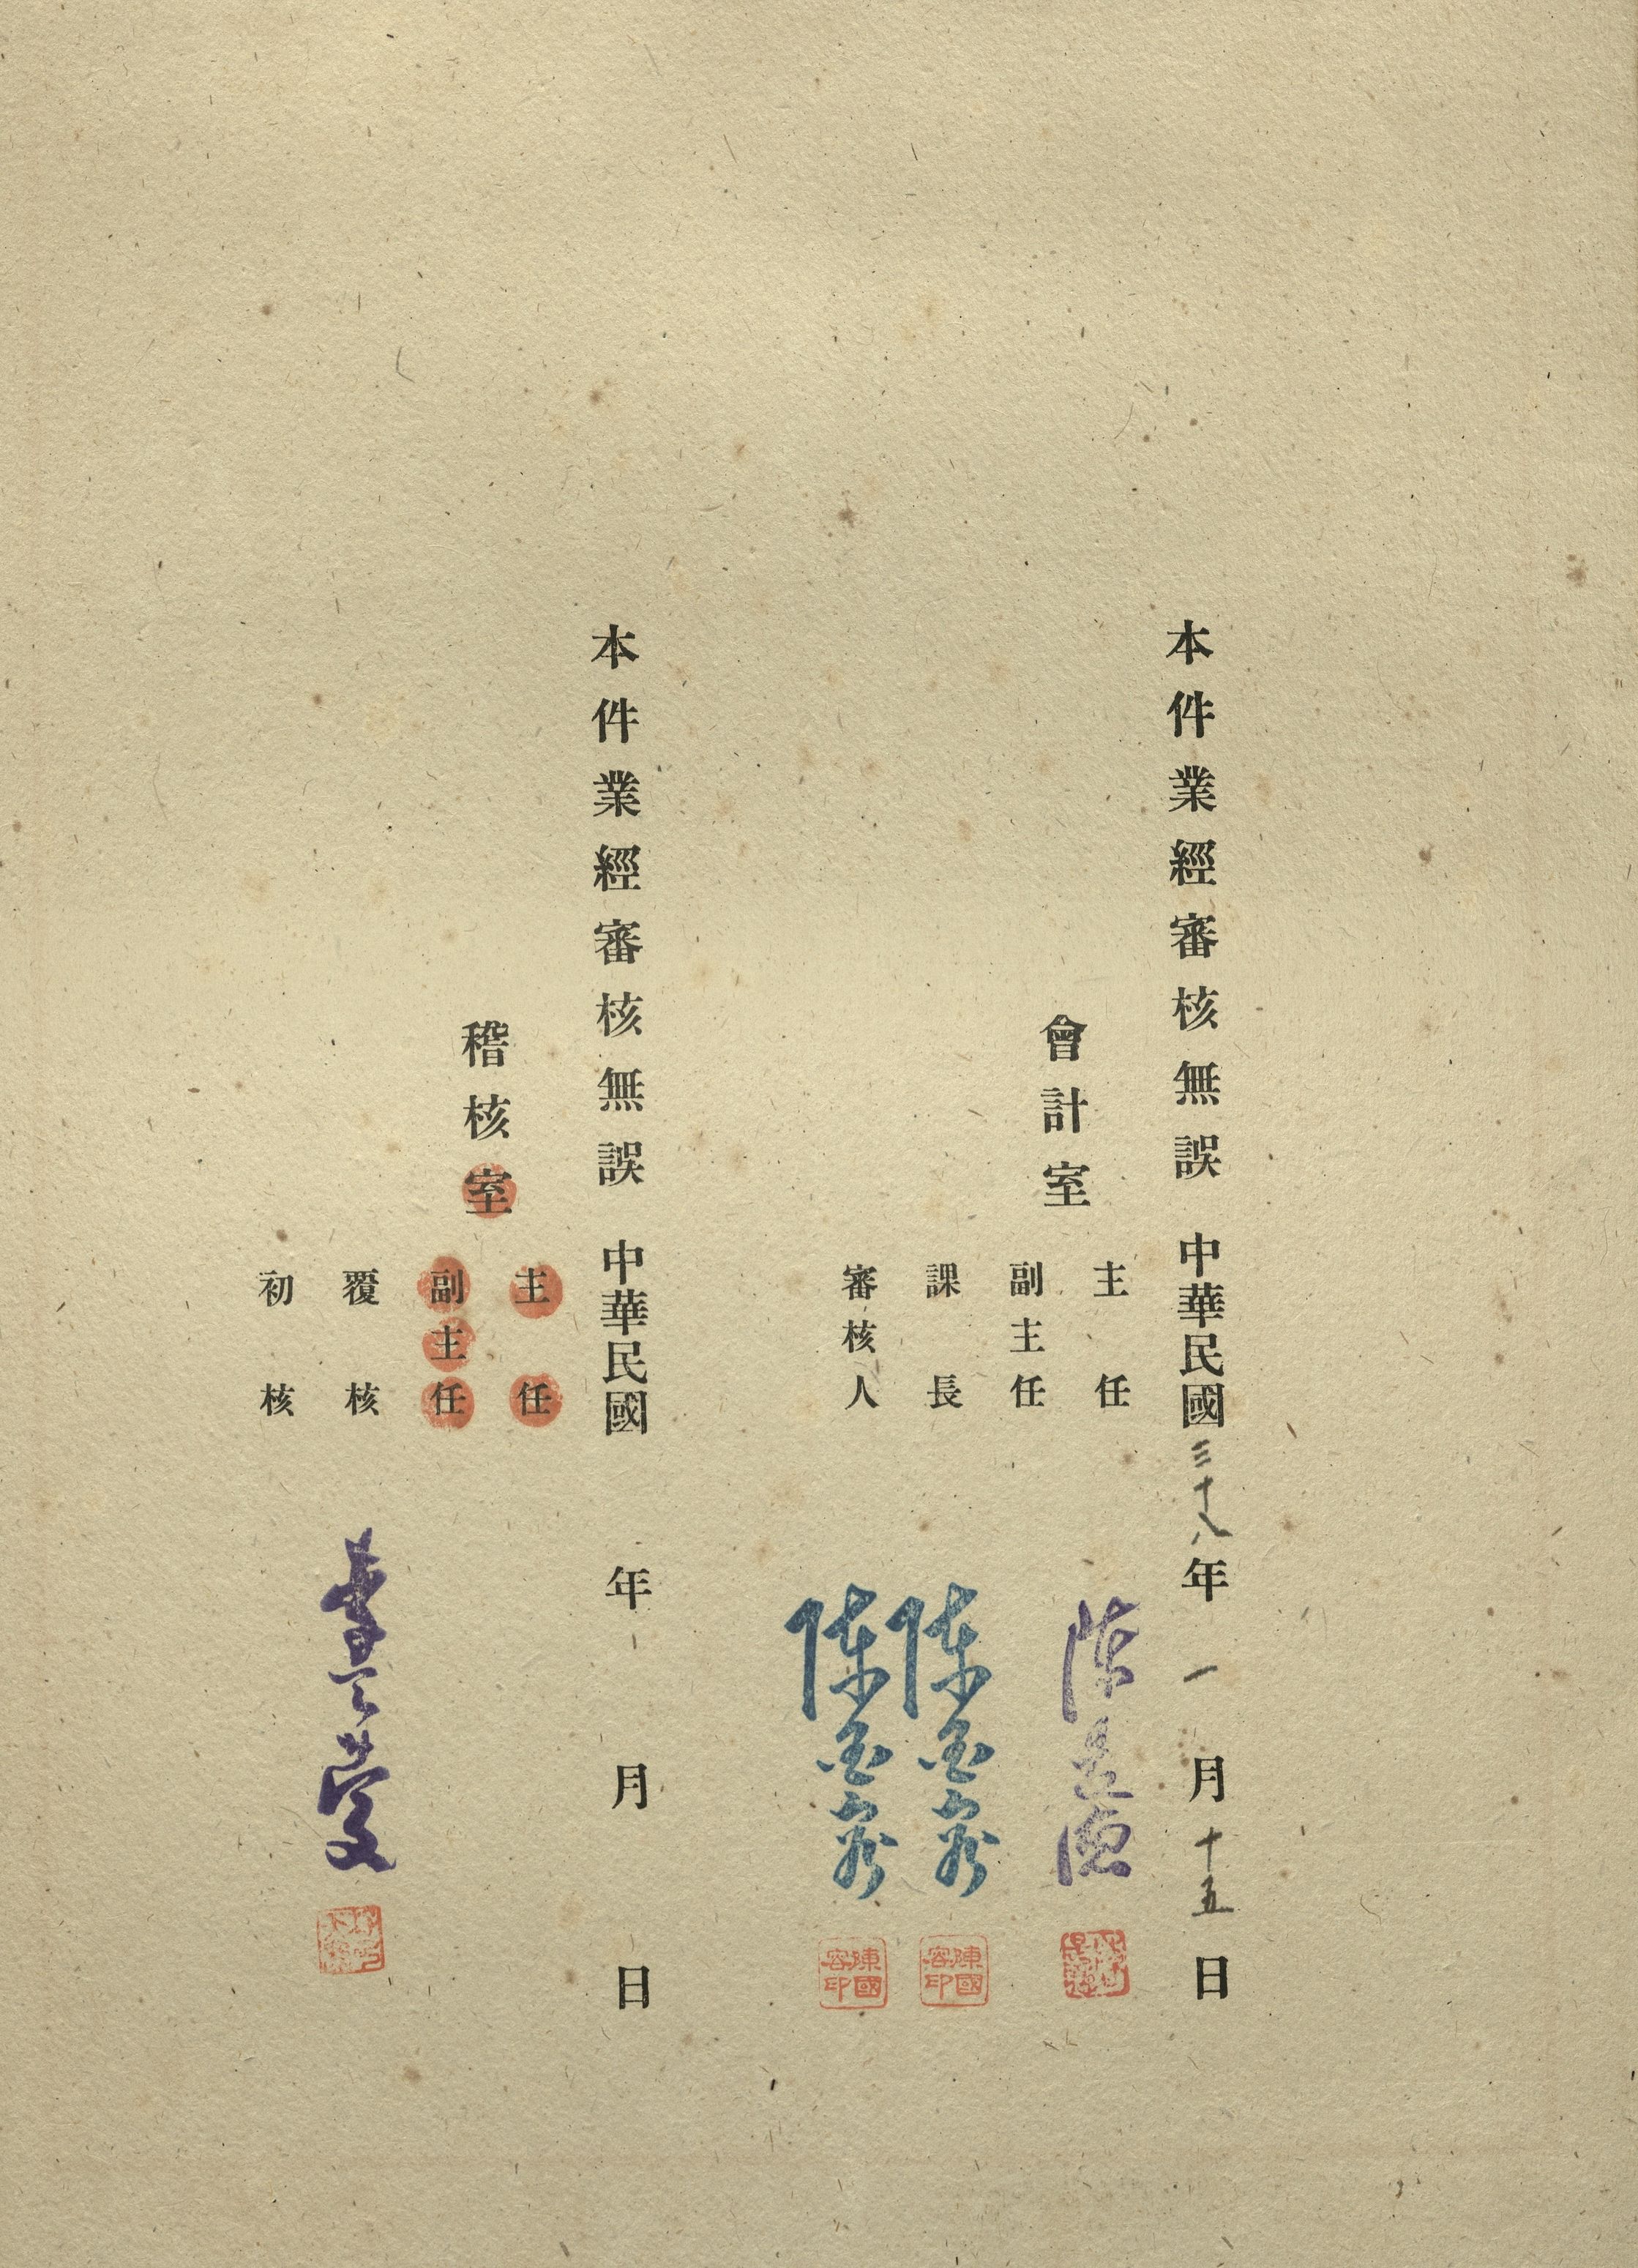 本件業經審核無誤 中華民國三十八年一月十五日
會計室
主任 陳
副主任
課長 陳國容
陳國容印
審核人 陳國容
陳國容印
本件業經審核無誤 中華民國 年 月 日
稽核室
主任
副主任
覆核
初核